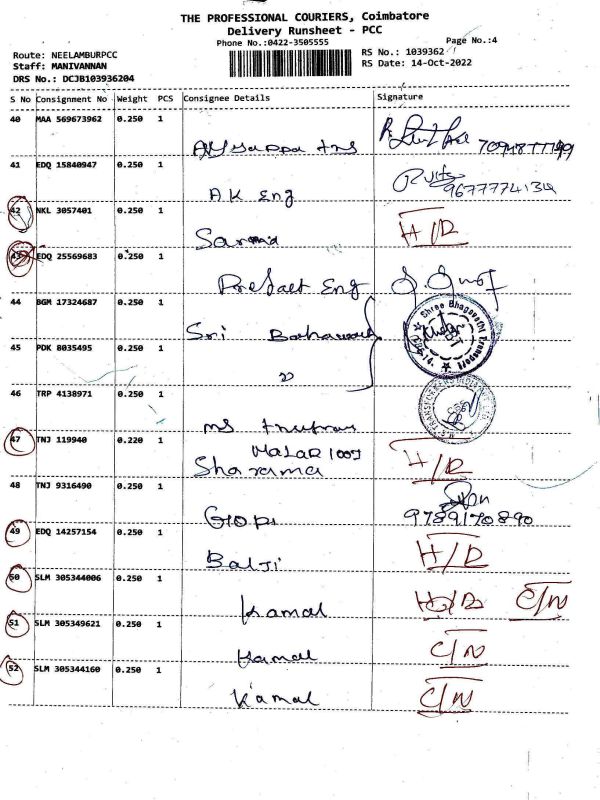 THE PROFESSIONAL COURIERS, Coimbatore
Delivery Runsheet - PCC
Phone No.:0422-3505555
Page No.:4
Route: NEELAMBURPCC
Staff: MANIVANNAN
DRS No.: DCJB103936204
RS No.: 1039362
RS Date: 14-Oct-2022
S No Consignment No Weight PCS Consignee Details Signature
40 MAA 569673962 0.250 1
41 EDQ 15840947 0.250 1
AK Eng
42 NKL 3057401 0.250 1
H/D
43 EDQ 25569683 0.250 1
Eng
44 BGM 17324687 0.250 1
Sri
Shree Bhagavathi Transport
45 PDK 8035495 0.250 1
46 TRP 4138971 0.250 1
MS
47 TNJ 119940 0.220 1
Sharama
H/D
48 TNJ 9316490 0.250 1
Gopi 9789170890
49 EDQ 14257154 0.250 1
Balji H/D
50 SLM 305344006 0.250 1
Kamal C/N
51 SLM 305349621 0.250 1
Kamal C/N
52 SLM 305344160 0.250 1
Kamal C/N